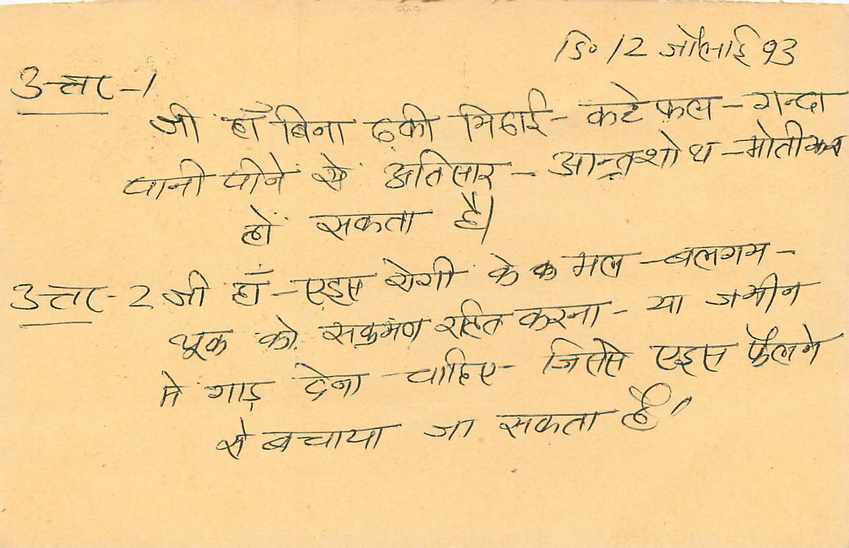 दि॰ 12 जौलाई 93
उत्तर-1
जी हाँ बिना ढकी मिठाई - कटे फल - गन्दा
पानी पीने से अतिसार - आन्त्रशोथ - मोतीझरा
हो सकता है।
उत्तर-2 जी हाँ - एड्स रोगी के क मल - बलगम -
थूक को संक्रमण रहित करना - या जमीन
मे गाड़ देना चाहिए - जिससे एड्स फैलने
से बचाया जा सकता है।